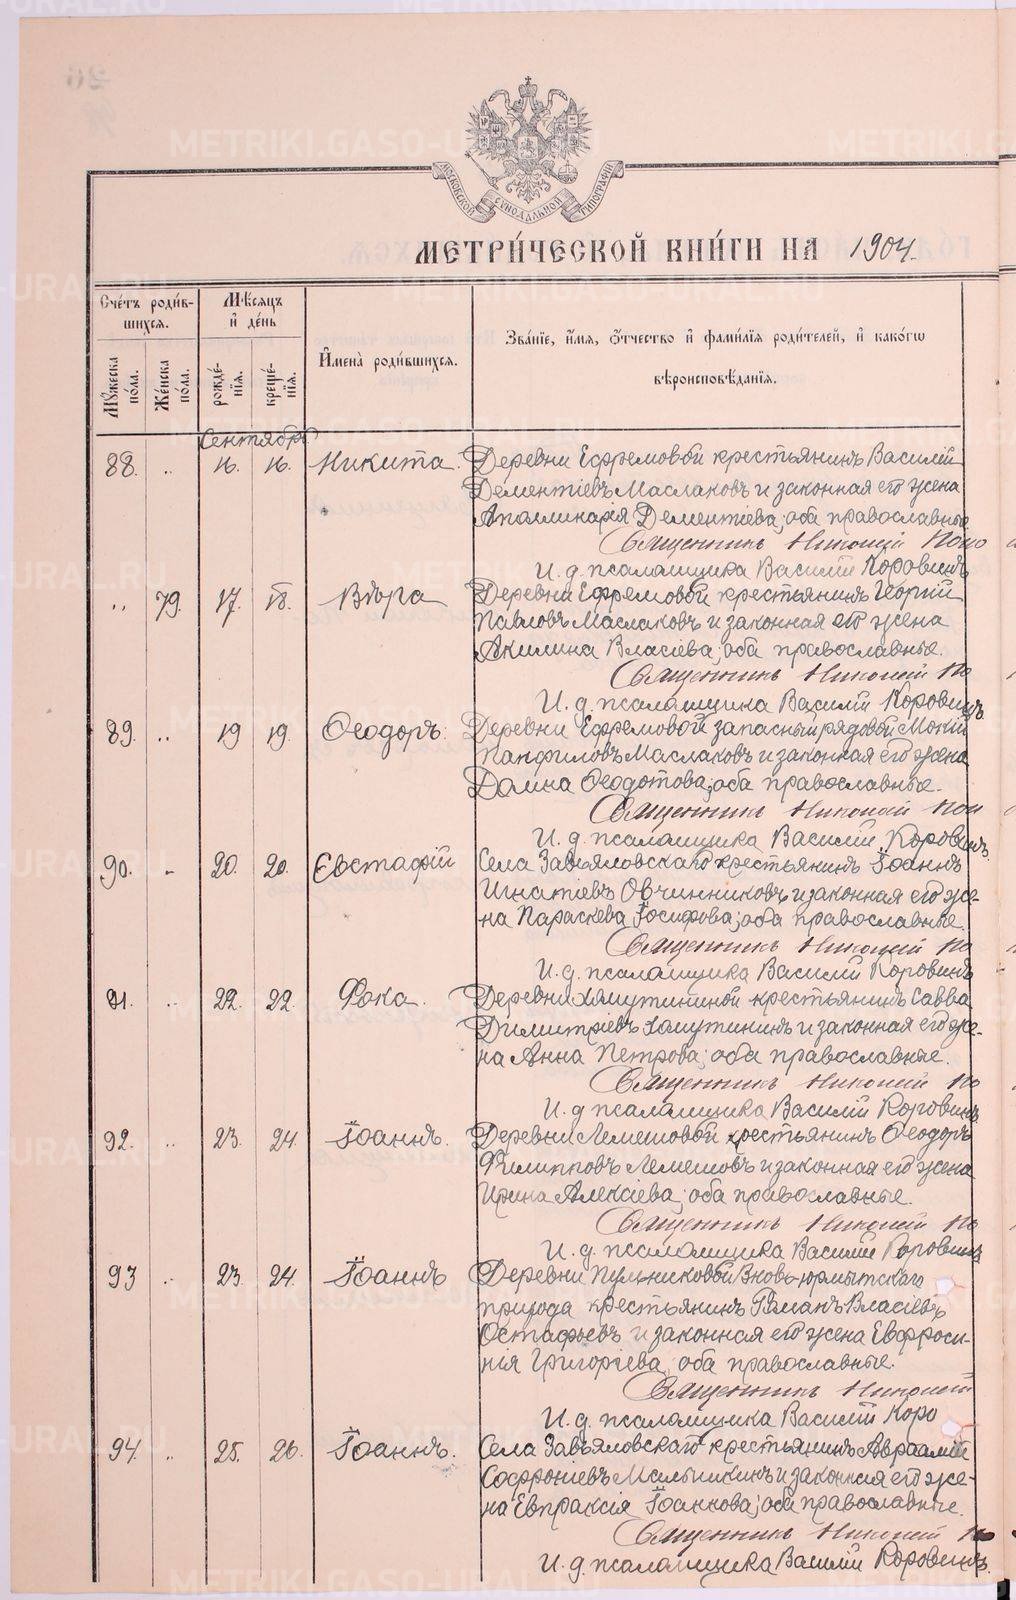 МОСКОВСКОЙ СѴНОДАЛЬНОЙ ТИПОГРАФІИ
МЕТРИ́ЧЕСКОЙ КНИ́ГИ НА 1904.
Сче́тъ роди́в-
шихсѧ.
Мѣ́сѧцъ
и҆ де́нь
И҆мена̀ роди́вшихсѧ.
Зва́нїе, и҆́мѧ, ѻ҆́тчество и҆ фами́лїѧ роди́телей, и҆ како́гѡ
вѣроисповѣ́данїѧ.
Мꙋ́жеска по́ла.
Же́нска по́ла.
рожде́-
нїѧ.
креще́-
нїѧ.
Сентябрь
88. „ 16. 16. Никита. Деревни Ефремовой крестьянинъ Василій
Дементіевъ Маслаковъ и законная его жена
Аполлинарія Дементіева; оба православные.
Священникъ Николай
И. д. псаломщика Василій Коровинъ
„ 79. 17. 18. Вѣра Деревни Ефремовой крестьянинъ Георгій
Павловъ Маслаковъ и законная его жена
Акилина Власіева; оба православные.
Священникъ Николай
И. д. псаломщика Василій Коровинъ.
89. „ 19 19. Ѳеодоръ. Деревни Ефремовой запасный рядовой Мокій
Панфиловъ Маслаковъ и законная его жена
Домна Ѳеодотова; оба православные.
Священникъ Николай
И. д. псаломщика Василій Коровинъ.
90. „ 20. 20. Евстафій Села Завьяловскаго крестьянинъ Іоаннъ
Игнатіевъ Овчинниковъ и законная его же-
на Параскева Іосифова; оба православные.
Священникъ Николай
И. д. псаломщика Василій Коровинъ
91. „ 22. 22. Фока. Деревни Хамутининой крестьянинъ Савва
Димитріевъ Хамутининъ и законная его же-
на Анна Петрова; оба православные.
Священникъ Николай
И. д. псаломщика Василій Коровинъ
92. „ 23. 24. Іоаннъ. Деревни Лемешовой крестьянинъ Ѳеодоръ
Филипповъ Лемешовъ и законная его жена
Ирина Алексіева; оба православные.
Священникъ Николай
И. д. псаломщика Василій Коровинъ
93 „ 23. 24. Іоаннъ Деревни Пульниковой Вновь-юрмытскаго
прихода крестьянинъ Романъ Власіевъ
Остафьевъ и законная его жена Евфроси-
нія Григоріева, оба православные.
Священникъ Николай
И. д. псаломщика Василій Коро
94. „ 25. 26. Іоаннъ. Села Завьяловскаго крестьянинъ Авраамій
Софроніевъ Мальникинъ и законная его же-
на Евпраксія Іоаннова; оба православные.
Священникъ Николай
И. д. псаломщика Василій Коровинъ.
METRIKI.GASO-URAL.RU